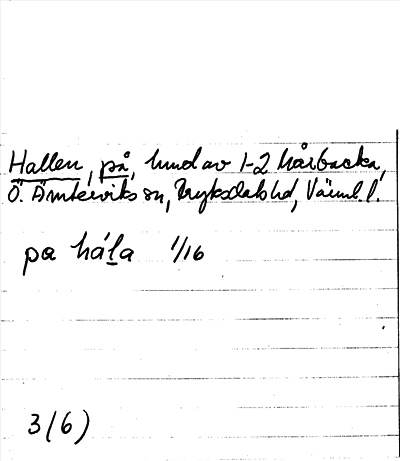 Hallen, på, hmd av 1-2 Hårbacka,
Ö. Ämterviks sn, Fryksdals hd, Värml. l.
pa háḻa 1/16
3(6)